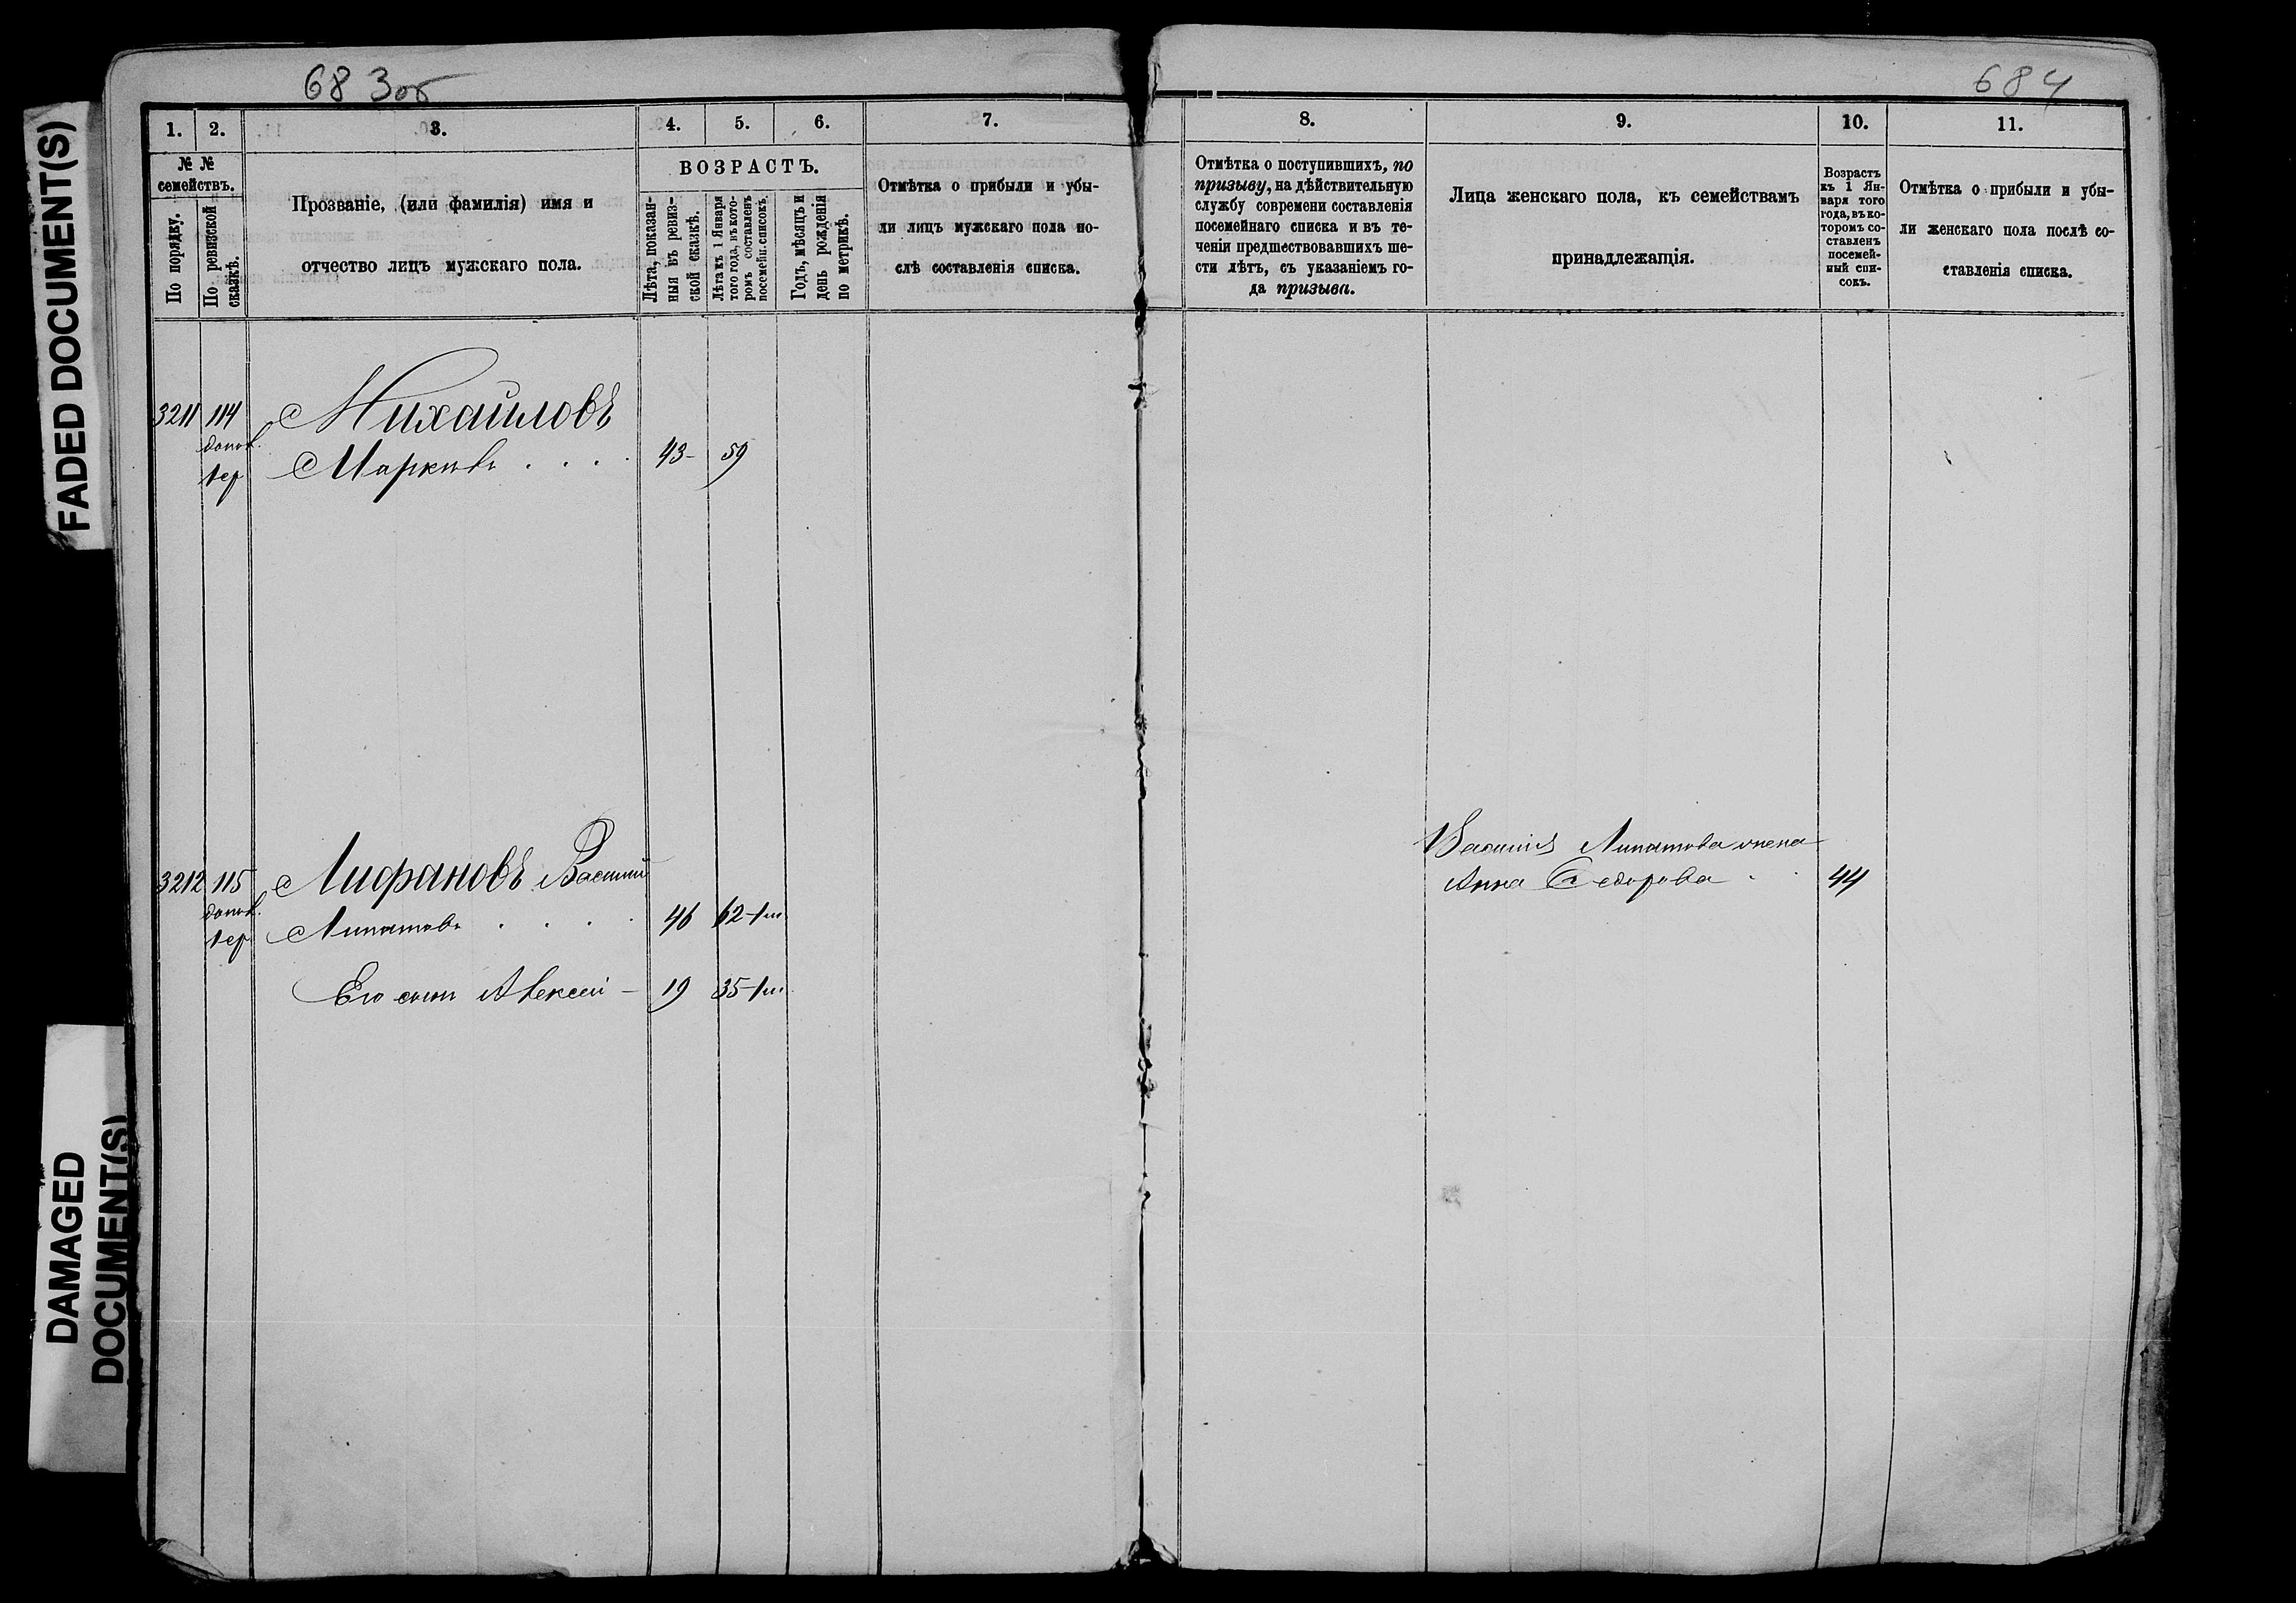 683об
684
FADED DOCUMENT(S)
DAMAGED
DOCUMENT(S)
1.
2.
3.
4.
5.
6.
7.
№ №
семействъ.
По порядку.
По ревизской
сказкѣ.
Прозваніе, (или фамилія) имя и
отчество лицъ мужскаго пола.
ВОЗРАСТЪ.
Лѣта, показан-
ныя въ ревиз-
ской сказкѣ.
Лѣта къ 1 Января
того года, въ кото-
ромъ составленъ
посемейн. списокъ.
Годъ, мѣсяцъ и
день рожденія
по метрикѣ.
Отмѣтка о прибыли и убы-
ли лицъ мужскаго пола по-
слѣ составленія списка.
8.
9.
10.
11.
Отмѣтка о поступившихъ, по
призыву, на дѣйствительную
службу современи составленія
посемейнаго списка и въ те-
ченіи предшествовавшихъ ше-
сти лѣтъ, съ указаніемъ го-
да призыва.
Лица женскаго пола, къ семействамъ
принадлежащія.
Возрастъ
къ 1 Ян-
варя того
года, въ ко-
торомъ со-
ставленъ
посемей-
ный спи-
сокъ.
Отмѣтка о прибыли и убы-
ли женскаго пола послѣ со-
ставленія списка.
3211 114 Михайловъ
Марковъ . . . . 43- 59
3212 115 Лифановъ Василій
Липатовъ . . . . 46 62
Его сынъ Алексей — 19 35
Василія Липатова жена
Анна Федорова . . 44